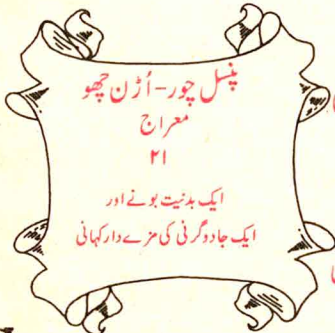 پنسل چور - اُڑن چھو
معراج
۲۱
ایک بدنیت بونے اور
ایک جادوگرنی کی مزے دار کہانی